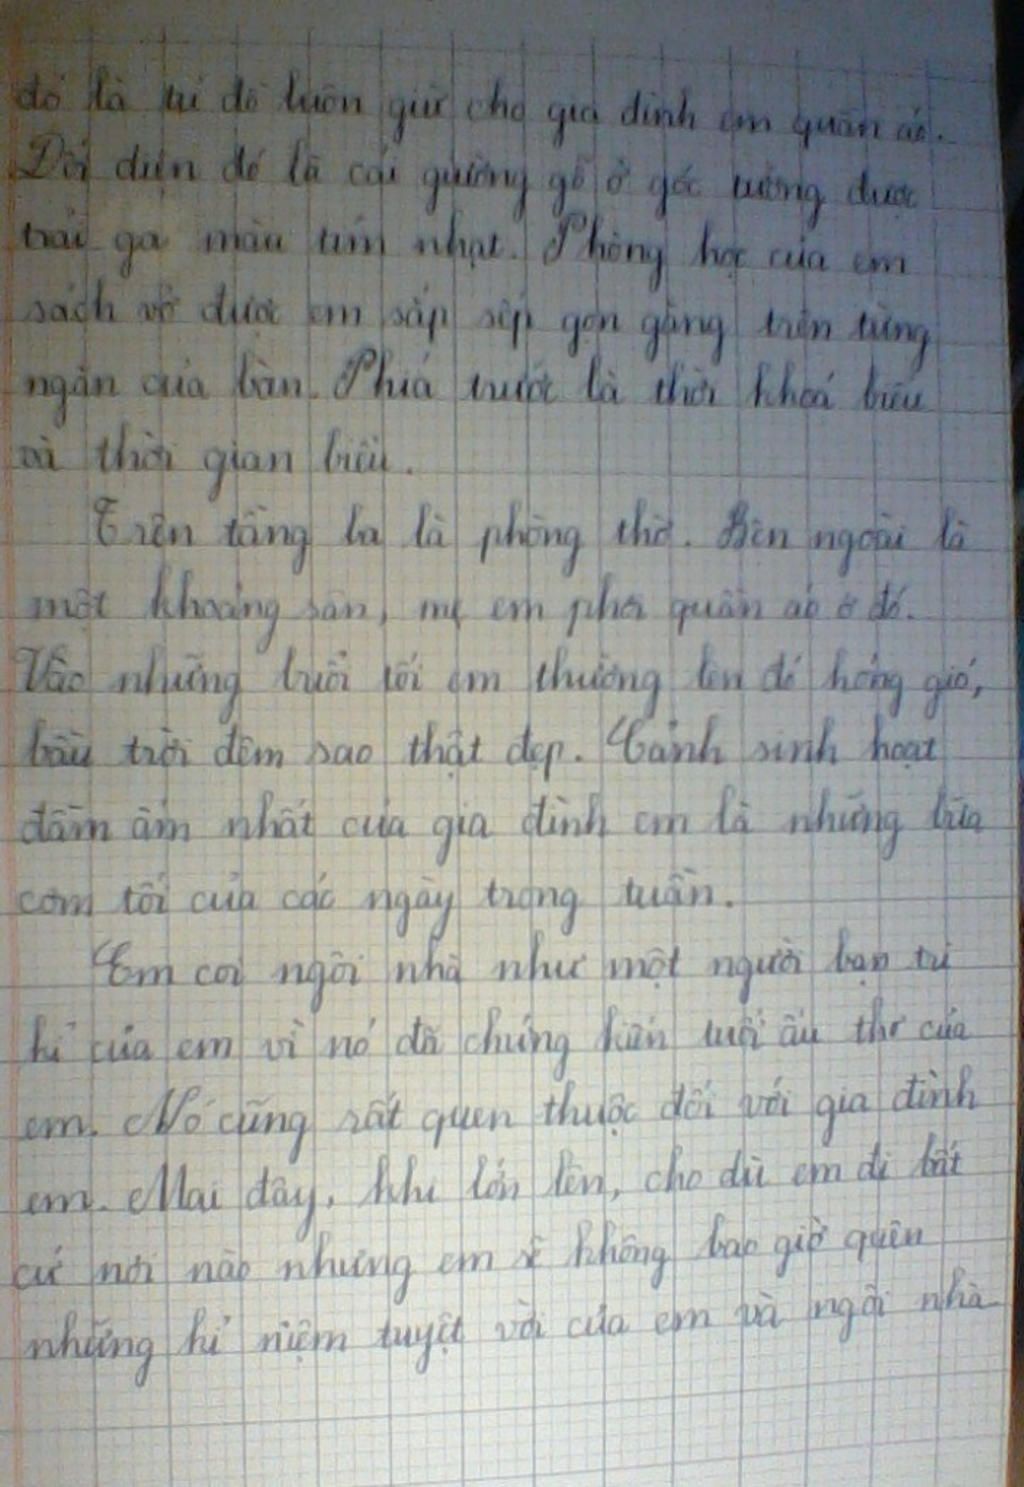 đó là tủ đồ luôn giữ cho gia đình em quần áo.
Đối diện đó là cái giường gỗ ở góc tường được
trải ga màu tím nhạt. Phòng học của em
sách vở được em sắp sếp gọn gàng trên từng
ngăn của bàn. Phía trước là thời khoá biểu
và thời gian biểu.
Trên tầng ba là phòng thờ. Bên ngoài là
một khoảng sân, mẹ em phơi quần áo ở đó.
Vào những buổi tối em thường lên đó hóng gió,
bầu trời đêm sao thật đẹp. Cảnh sinh hoạt
đầm ấm nhất của gia đình em là những bữa
cơm tối của các ngày trong tuần.
Em coi ngôi nhà như một người bạn tri
kỉ của em vì nó đã chứng kiến tuổi ấu thơ của
em. Nó cũng rất quen thuộc đối với gia đình
em. Mai đây, khi lớn lên, cho dù em đi bất
cứ nơi nào nhưng em sẽ không bao giờ quên
những kỉ niệm tuyệt vời của em và ngôi nhà